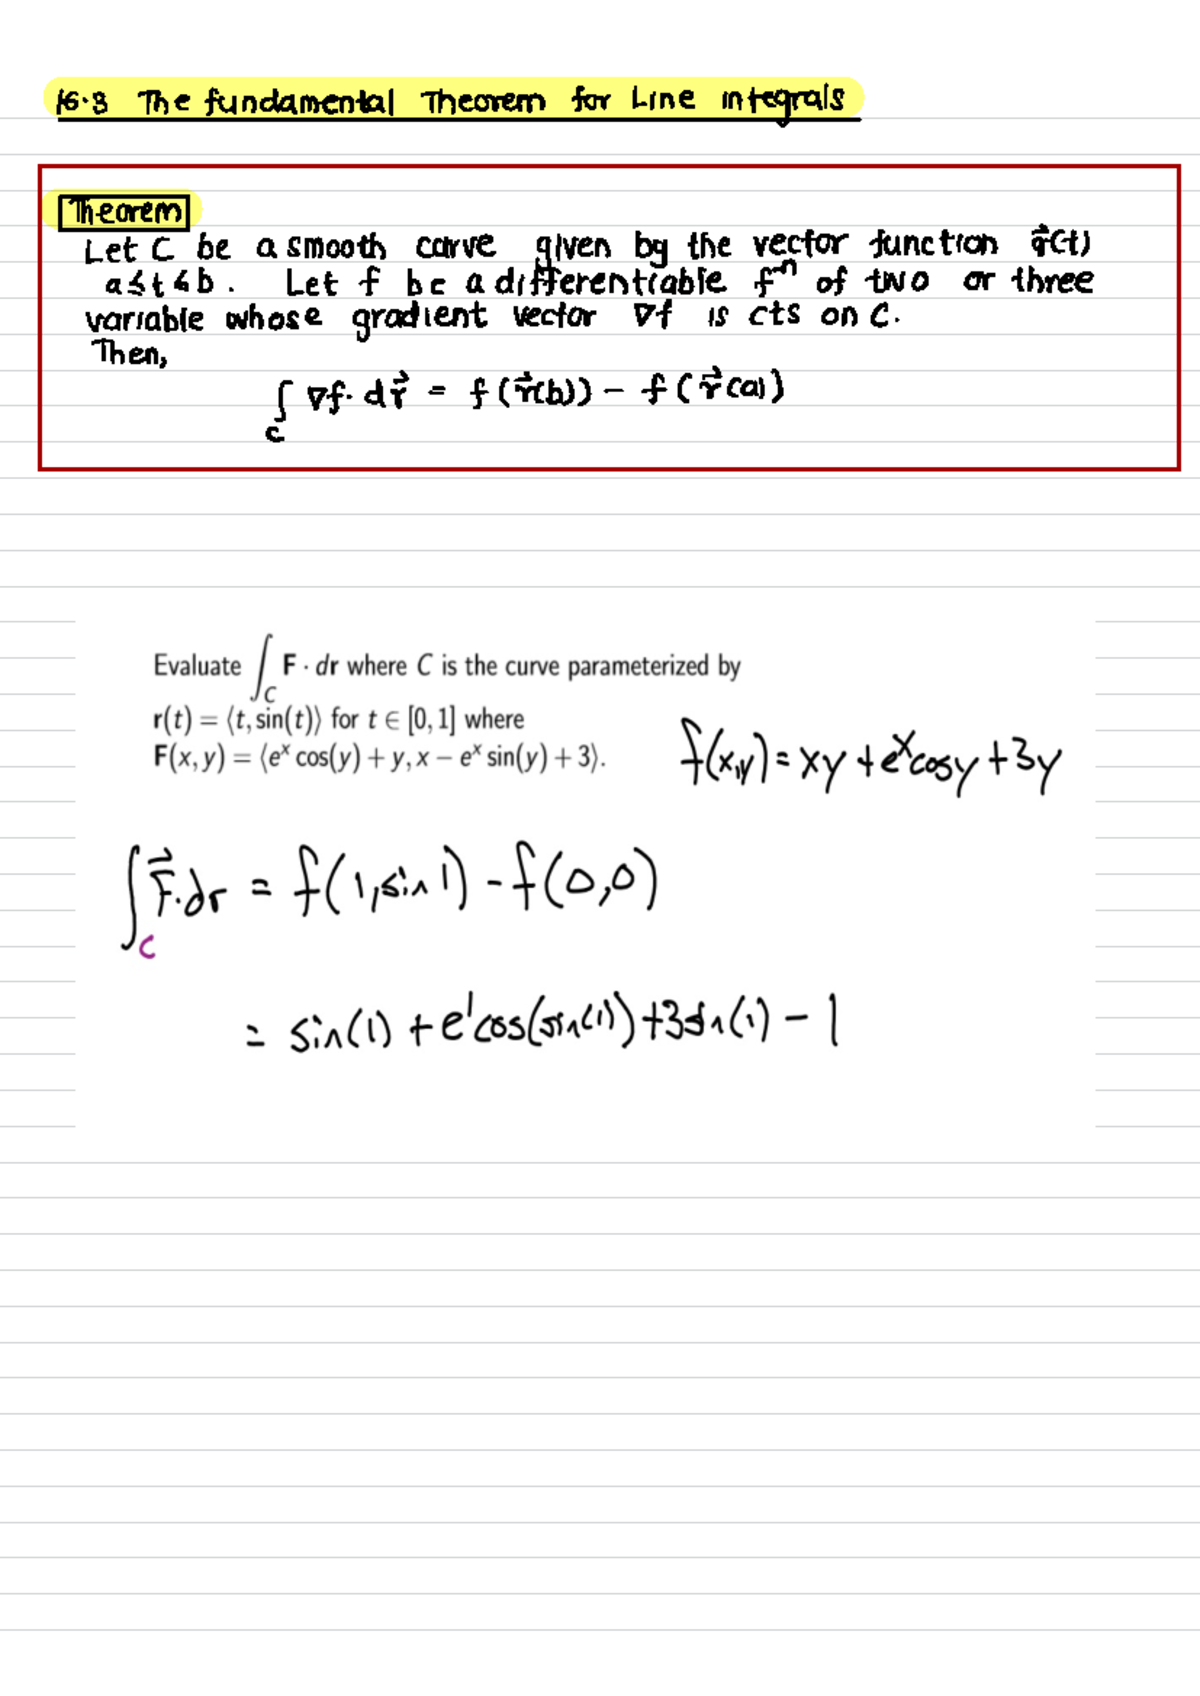 16.3 The fundamental Theorem for Line integrals
Theorem
Let C be a smooth carve given by the vector function r⃗(t)
a≤t≤b. Let f be a differentiable fⁿ of two or three
variable whose gradient vector ∇f is cts on C.
Then,
∫_C ∇f· dr⃗ = f(r⃗(b)) – f(r⃗(a))
Evaluate ∫_C F · dr where C is the curve parameterized by
r(t) = ⟨t, sin(t)⟩ for t ∈ [0, 1] where
F(x, y) = ⟨eˣ cos(y) + y, x − eˣ sin(y) + 3⟩.
f(x,y) = xy + eˣcosy + 3y
∫_C F⃗·dr = f(1,sin 1) - f(0,0)
= sin(1) + e'cos(sin(1)) + 3sin(1) - 1